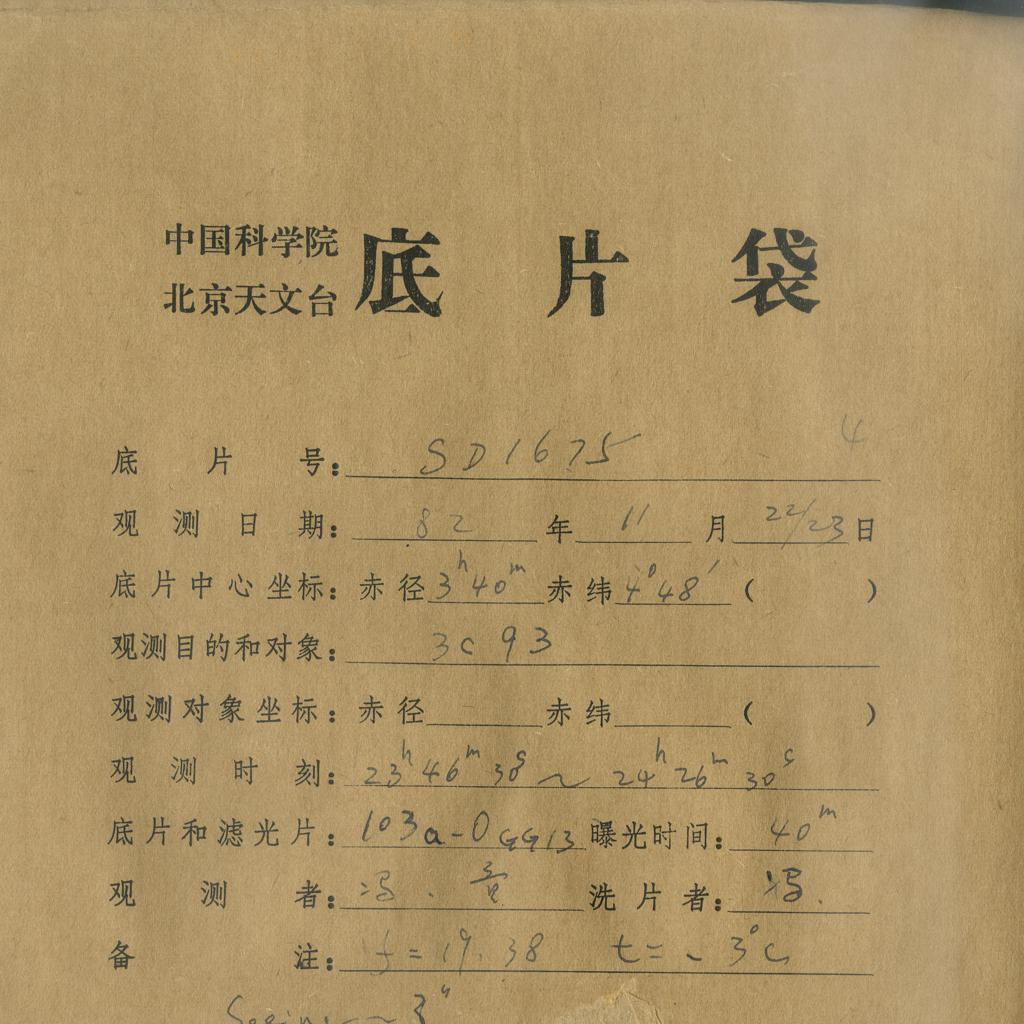 中国科学院
北京天文台
底片袋
4
底片号: SD1675
观测日期: 82年11月22/23日
底片中心坐标: 赤径3ʰ40ᵐ赤纬4°48′( )
观测目的和对象: 3C93
观测对象坐标: 赤径 赤纬 ( )
观测时刻: 23ʰ46ᵐ30ˢ ~ 24ʰ26ᵐ30ˢ
底片和滤光片: 103a-O GG13 曝光时间: 40ᵐ
观测者: 冯. 洗片者: 冯.
备注: f=19.38 t= -3°C
Seeing -~3"